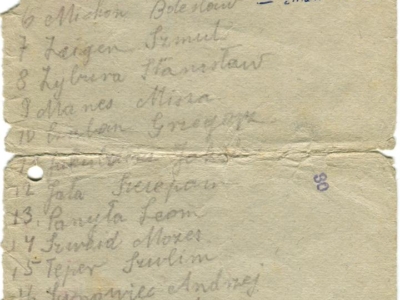 6 Michoń Bolesław
7 Zaigen Szmul
8 Zybura Stanisław
9 Manes Misza
10 Grzegorz
11 Jakób
12 Jota Szczepan
13. Panyła Leon
14 Szwhid Mozes
15 Teper Szulim
Andrzej
90